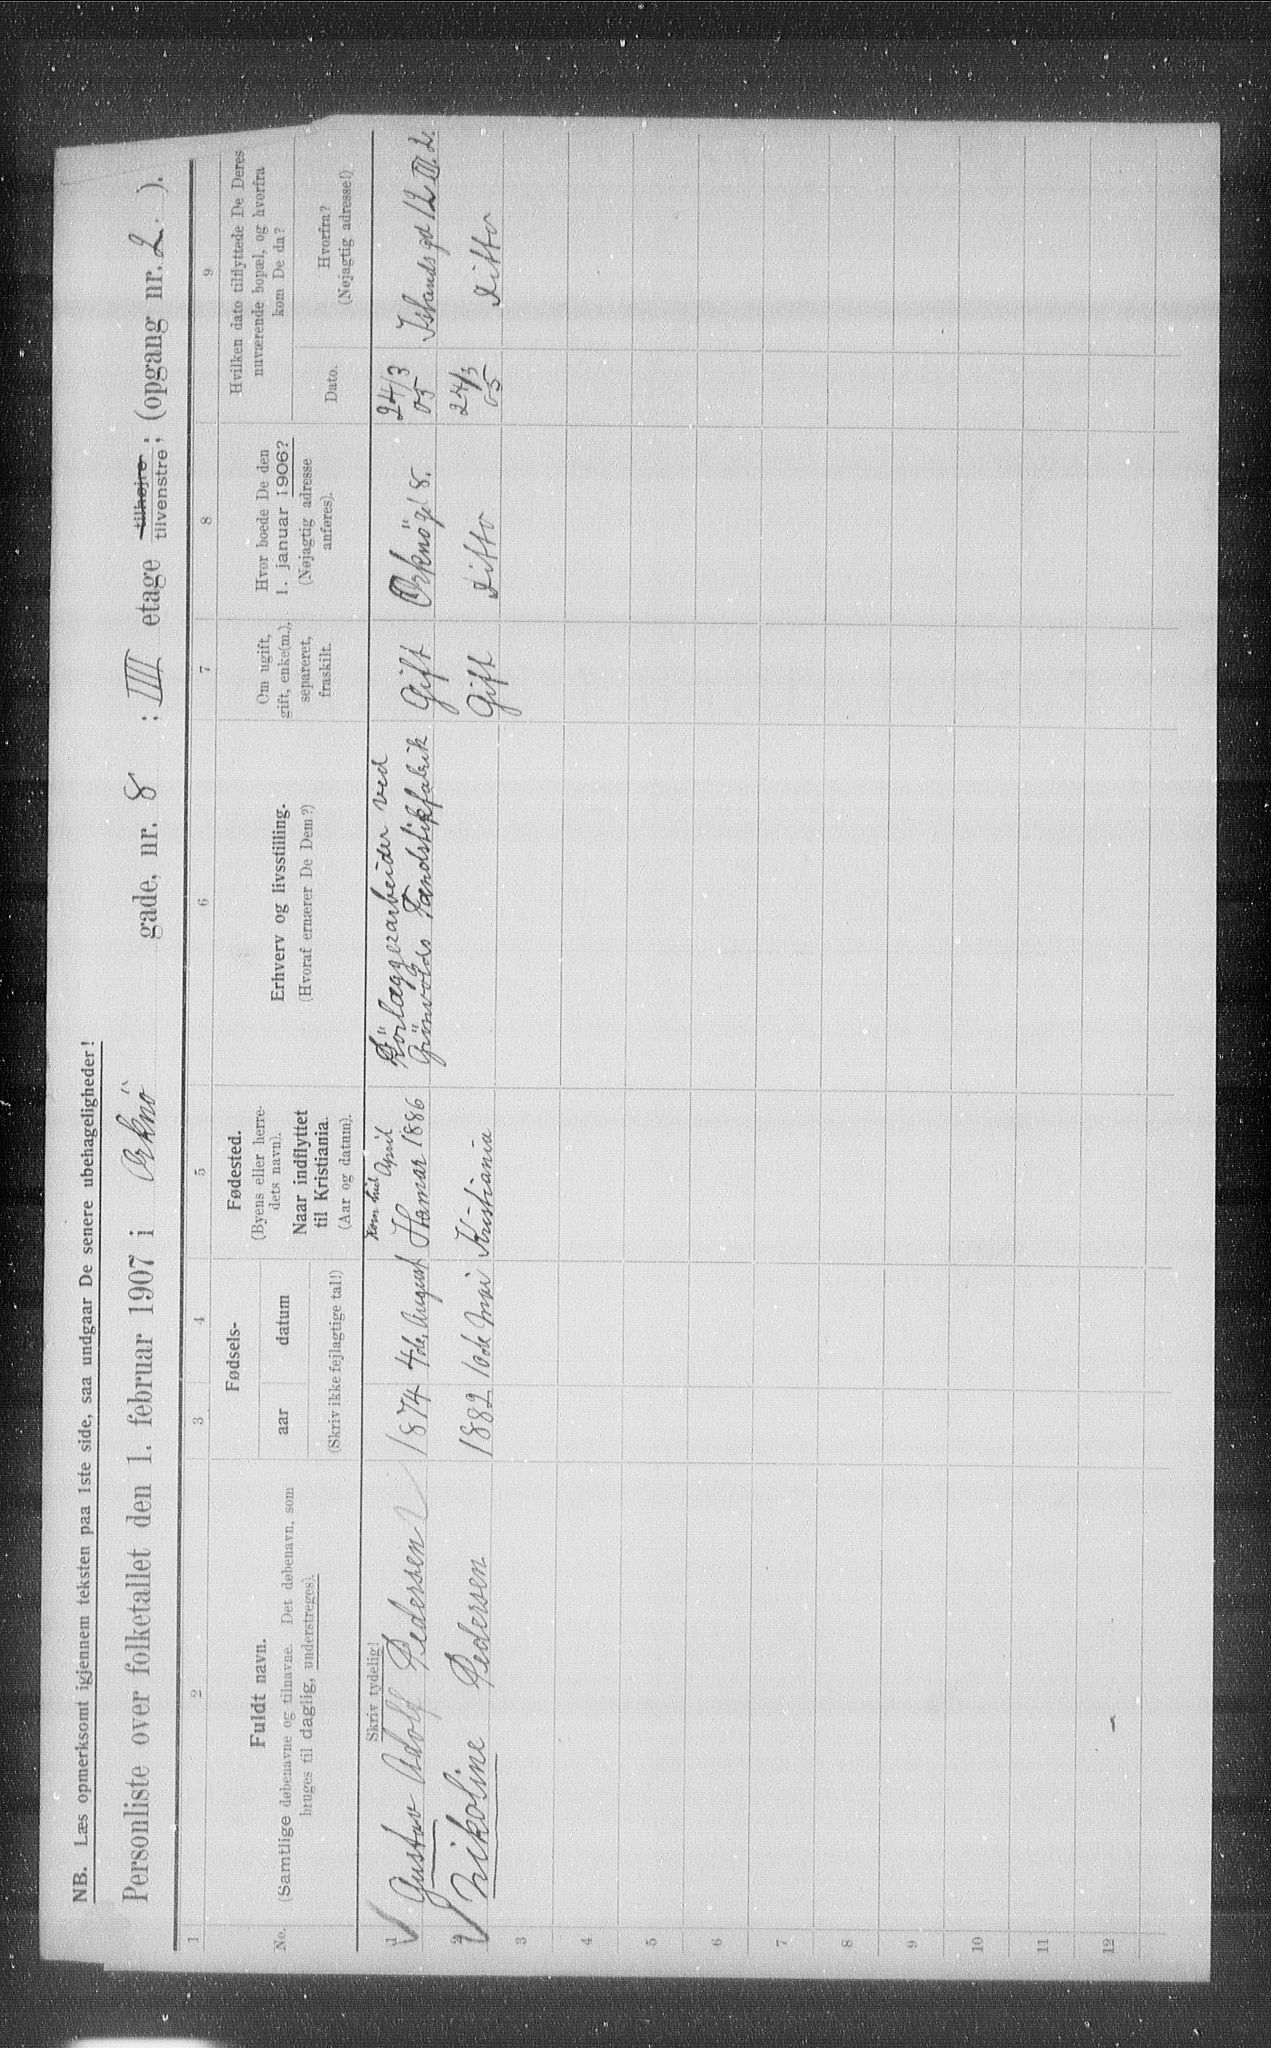 NB. Læs opmerksomt igjennem teksten paa 1ste side, saa undgaar De senere ubehageligheder!
Personliste over folketallet den 1. februar 1907 i Orknö gade, nr. 8 : III etage tilhøjre tilvenstre ; (opgang nr. 2. ).
1 2 3 4 5 6 7 8 9
No.
Fuldt navn.
(Samtlige døbenavne og tilnavne. Det døbenavn, som
bruges til daglig, understreges).
Skriv tydelig!
Fødsels-
aar datum
(Skriv ikke fejlagtige tal!)
Fødested.
(Byens eller herre-
dets navn).
Naar indflyttet
til Kristiania.
(Aar og datum).
Erhverv og livsstilling.
(Hvoraf ernærer De Dem?)
Om ugift,
gift, enke(m.),
separeret,
fraskilt.
Hvor boede De den
1. januar 1906?
(Nøjagtig adresse
anføres).
Hvilken dato tilflyttede De Deres
nuværende bopæl, og hvorfra
kom De da?
Dato.
Hvorfra?
(Nøjagtig adresse!)
kom hid April Rörlæggerarbeider ved
1 Gustav Adolf Pedersen 1874 4de August Hamar 1886 Grönvolds Tændstikfabrik Gift Orknögd 8. 24/3 05 Islandsgd 12 III. 2.
2 Nikoline Pedersen 1882 10de Mai Kristiania Gift Ditto 24/3 05 Ditto
3
4
5
6
7
8
9
10
11
12